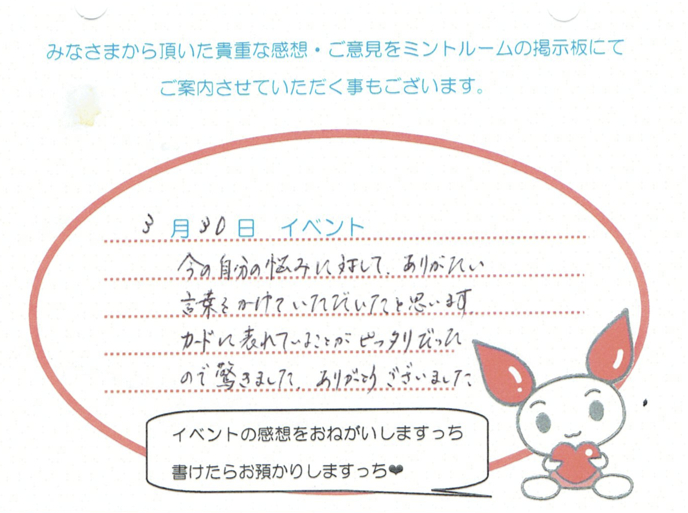 みなさまから頂いた貴重な感想・ご意見をミントルームの掲示板にて
ご案内させていただく事もございます。
3月30日 イベント
今の自分の悩みに対して、ありがたい
言葉をかけていただいたと思います
カードに表れていることがピッタリだった
ので驚きました。ありがとうございました
イベントの感想をおねがいしますっち
書けたらお預かりしますっち❤